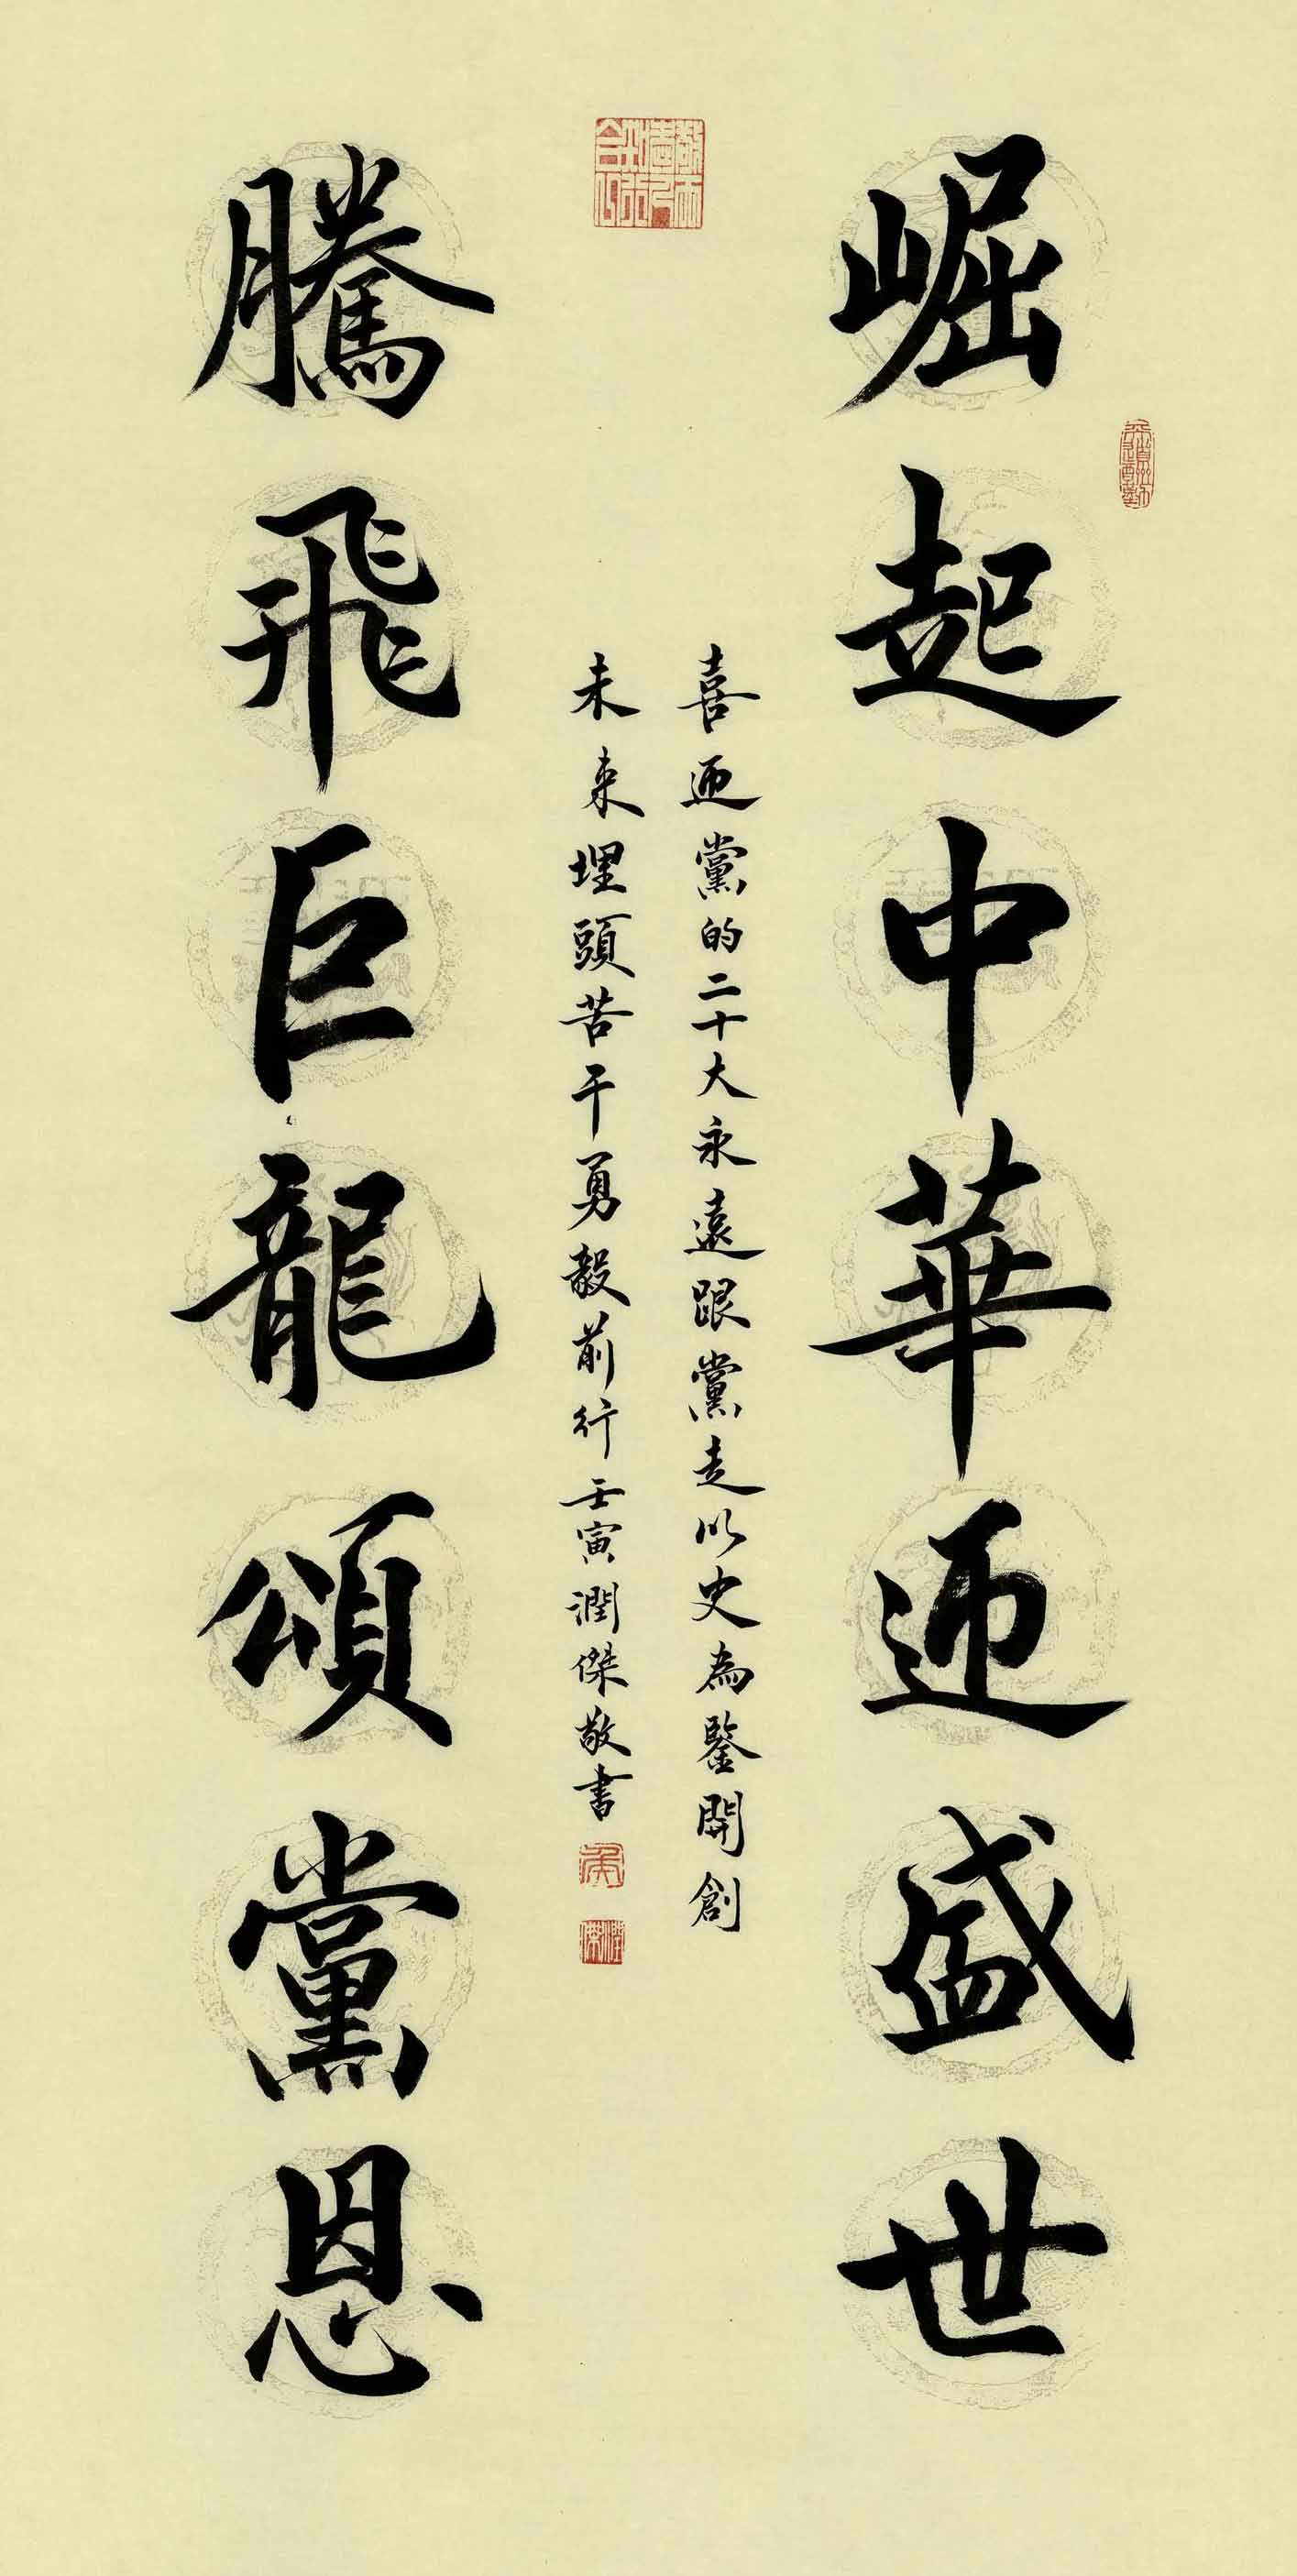 崛起中華迎盛世
喜迎黨的二十大永遠跟黨走以史為鑒開創
未来埋頭苦干勇毅前行壬寅潤傑敬书
騰飛巨龍頌黨恩